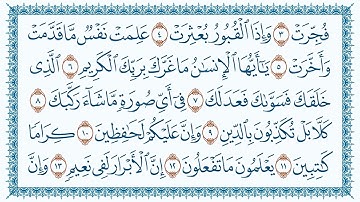 فُجِّرَتْ ٣ وَإِذَا ٱلْقُبُورُ بُعْثِرَتْ ٤ عَلِمَتْ نَفْسٌ مَّا قَدَّمَتْ
وَأَخَّرَتْ ٥ يَـٰٓأَيُّهَا ٱلْإِنسَـٰنُ مَا غَرَّكَ بِرَبِّكَ ٱلْكَرِيمِ ٦ ٱلَّذِى
خَلَقَكَ فَسَوَّىٰكَ فَعَدَلَكَ ٧ فِىٓ أَىِّ صُورَةٍ مَّا شَآءَ رَكَّبَكَ ٨
كَلَّا بَلْ تُكَذِّبُونَ بِٱلدِّينِ ٩ وَإِنَّ عَلَيْكُمْ لَحَـٰفِظِينَ ١٠ كِرَامًا
كَـٰتِبِينَ ١١ يَعْلَمُونَ مَا تَفْعَلُونَ ١٢ إِنَّ ٱلْأَبْرَارَ لَفِى نَعِيمٍ ١٣ وَإِنَّ